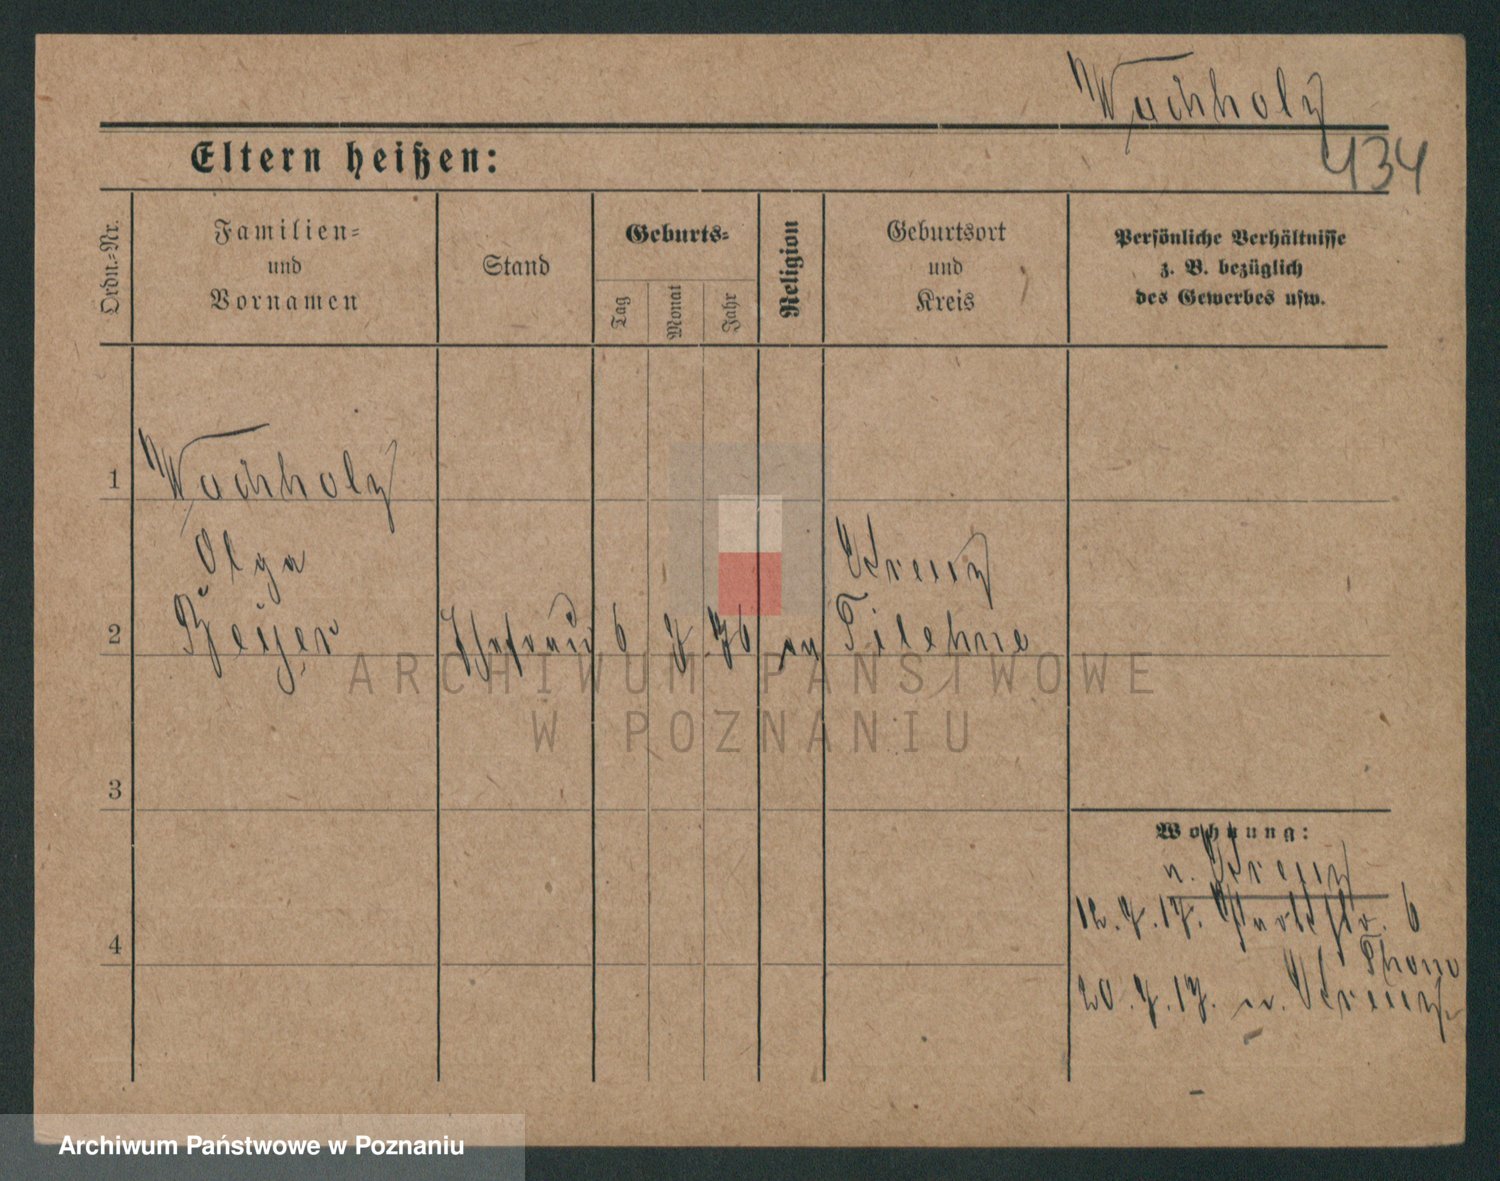 Wachholz
434
Eltern heißen:
Ordn.-Nr.
Familien-
und
Vornamen
Stand
Geburts-
Tag
Monat
Jahr
Religion
Geburtsort
und
Kreis
Persönliche Verhältnisse
z. B. bezüglich
des Gewerbes usw.
1
Wachholz
Olga
Kreuz
2
Beyer
Ehefrau
6
7
76
ev
Filehne
ARCHIWUM PAŃSTWOWE
W POZNANIU
3
Wohnung:
n. Kreuz
12.7.17. Parkstr. 6
4
Thorn
20.7.17. n. Kreuz
Archiwum Państwowe w Poznaniu